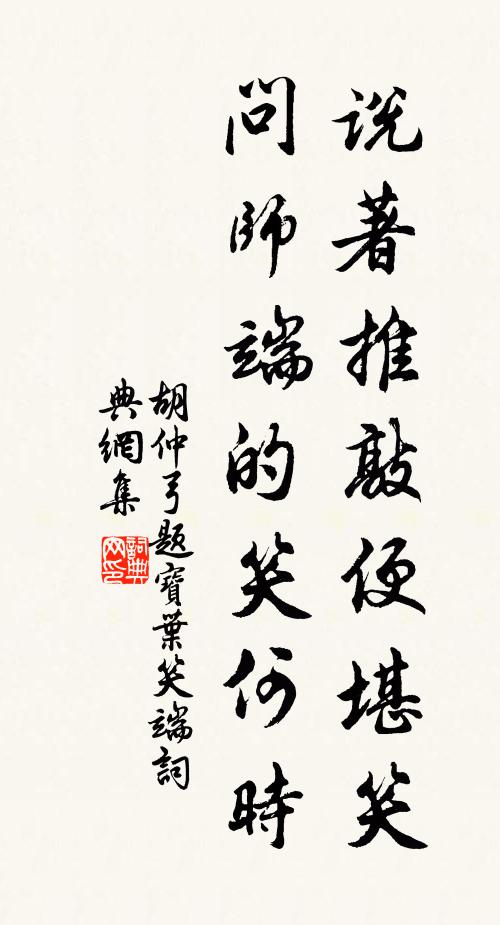 說著推敲便堪笑
問師端的笑何時
胡仲弓題寶葉笑端詞
典網集
詞典網印